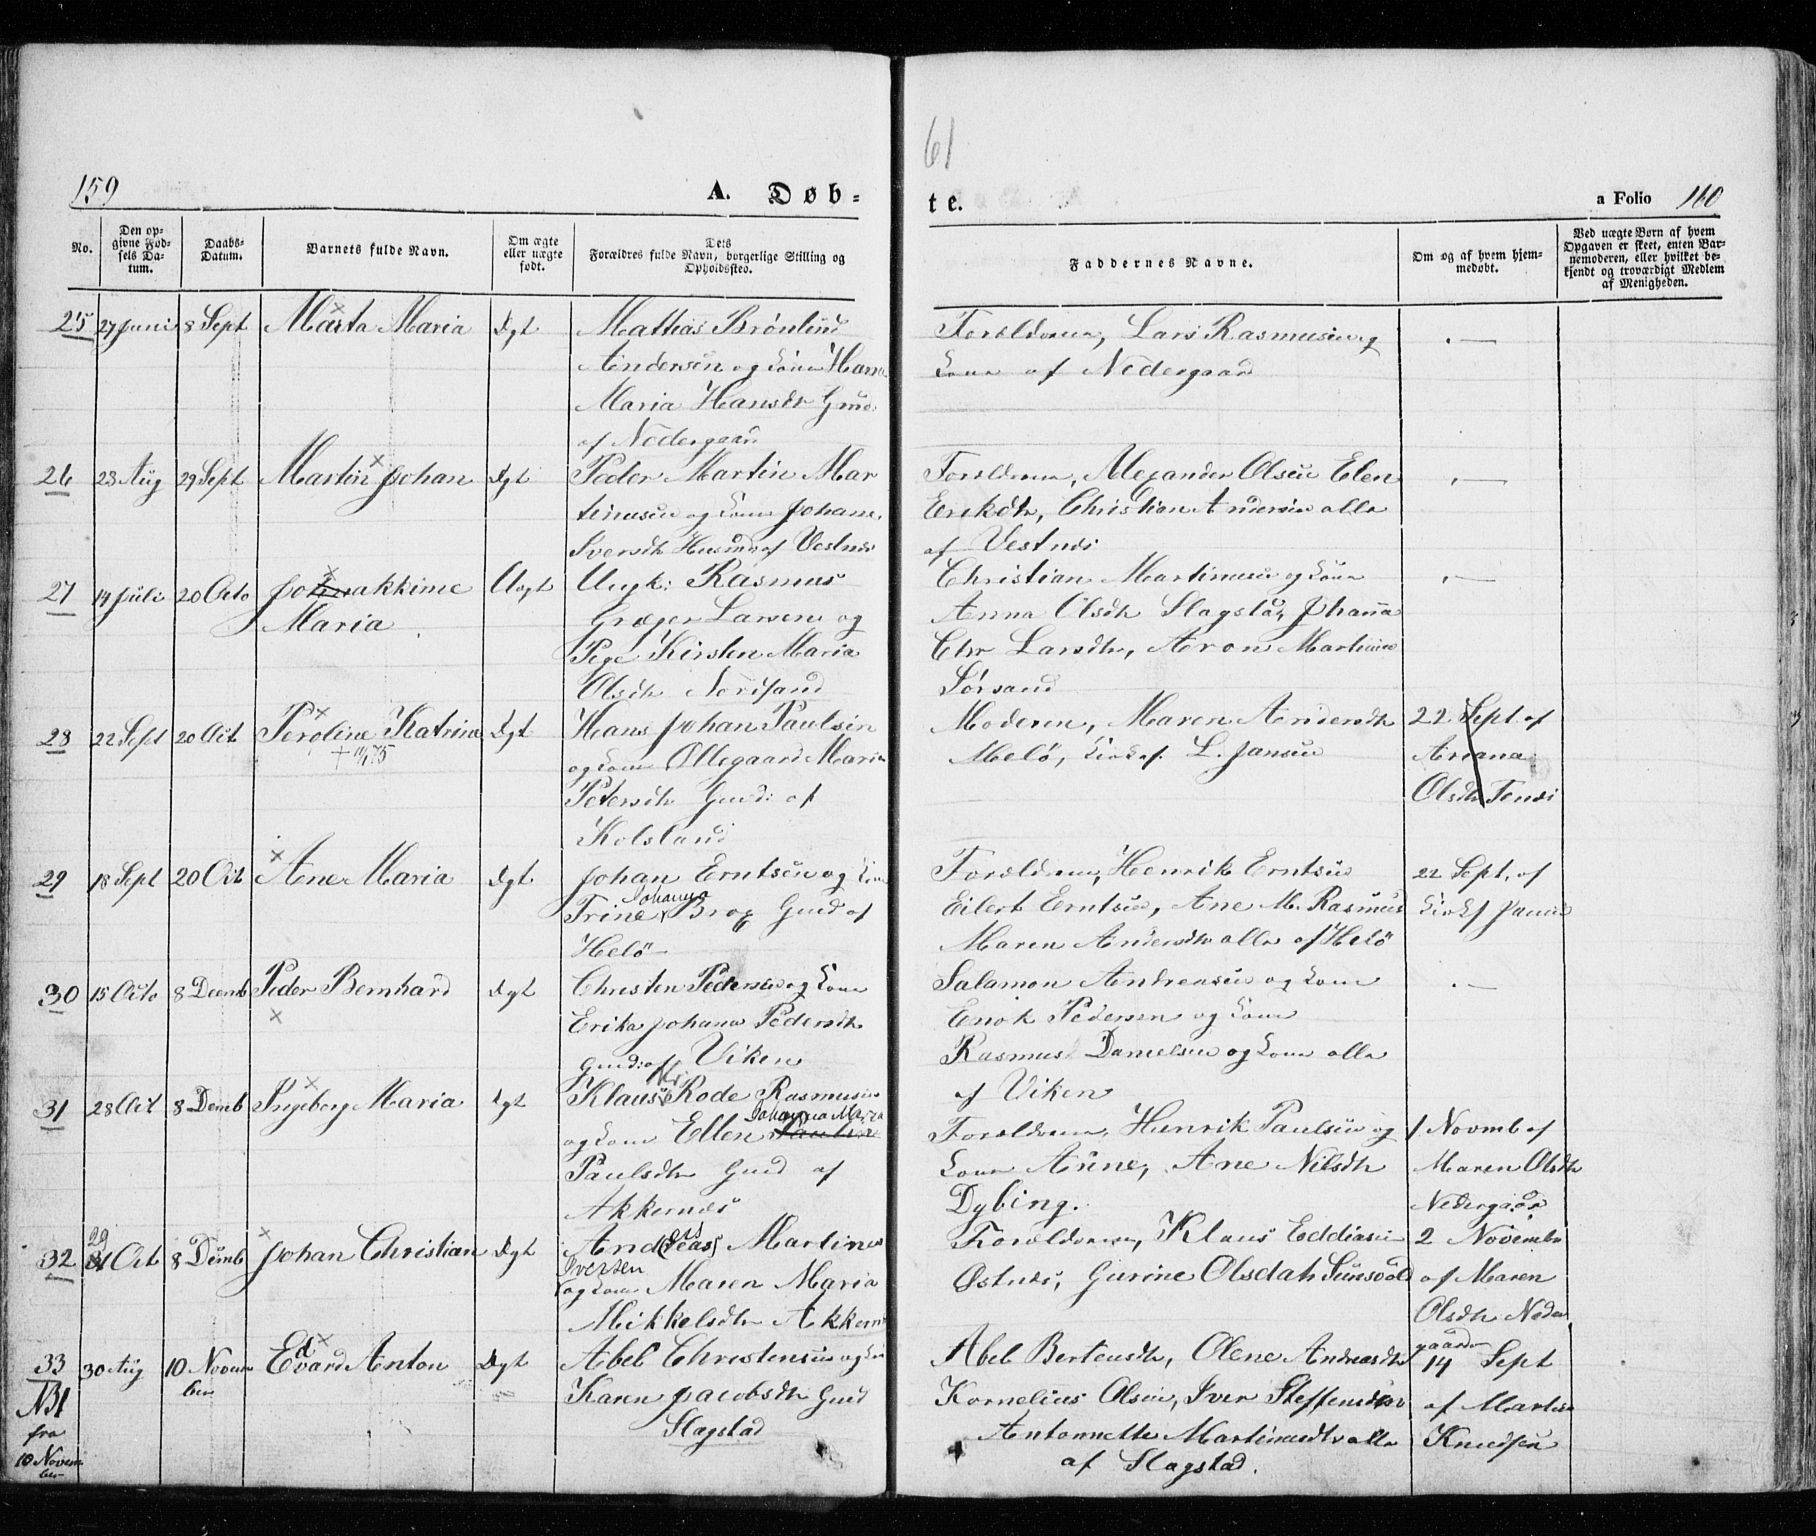 159
A. Døb-
No.
Den op-
givne Fød-
sels Da-
tum.
Daabs-
Datum.
Barnets fulde Navn.
Om ægte
eller uægte
født.
Dets
Forældres fulde Navn, borgerlige Stilling og
Opholdssted.
61
te.
a Folio 160
Faddernes Navne.
Om og af hvem hjem-
medøbt.
Ved uægte Børn af hvem
Opgaven er skeet, enten Bar-
nemoderen, eller hvilket be-
kjendt og troværdigt Medlem
af Menigheden.
25 27 Juni 8 Sept Marta Maria Ægt Mattias Brönlund
Andersen og Kone Hanna
Maria Hansdtr Gmd.
af Nedergaard
Forældrene, Lars Rasmusen og
Kone af Nedergaard
26 23 Aug 29 Sept Martin Johan Ægt Peder Martin Mar
tinusen og Kone Johanna
Iversdtr Husmd af Vestnes
Forældrene, Alexander Olsen Elen
Eriksdtr, Christian Andersen alle
af Vestnes
27 14 Juli 20 Octo Joakkime
Maria Uægt Ungk: Rasmus
Græger Larsen og
Pige Kirsten Maria
Olsdtr Nordsand
Christian Martinusen og Kone
Anna Olsdtr Slagstad, Johanna
Chr Larsdtr, Aron Martinusen
Sörsand
28 22 Sept 20 Oct Peroline Katrine Ægt Hans Johan Paulsen
og Kone Ollegaard Maria
Petersdtr Gmd: af
Kolsland
Moderen, Maren Andersdtr
Melö, Kirks. L. Jansen
22 Sept af
Ariana
Olsdtr Tennes
29 18 Sept 20 Oct Ane Maria Ægt Johan Erntsen og Kone
Johanna
Trine Brox Gmd af
Helö
Forældrene, Henrik Erntsen
Eilert Erntsen, Ane M. Rasmus
Maren Andersdtr alle af Helö
22 Sept. af
Kirks Jansen
30 15 Octo 8 Decemb Peder Bernhard Ægt Christen Pedersen og Kone
Erika Johana Pedersdtr
Gmd: af Viken
Salamon Andreasen og Kone
Enok Pedersen og Kone
Rasmus Danielsen og Kone alle
af Viken
31 28 Oct 8 Decmb Ingeborg Maria Ægt Klaus Rode Rasmusen
Johanna Maria
og Kone Ellen
Paulsdtr Gmd af
Akkernes
Forældrene, Henrik Paulsen og
Kone Anne, Ane Nilsdtr
Dybing.
1 Novmb af
Maren Olsdtr
Nedergaard
32 29 Oct 8 Decmb Johan Christian Ægt Andreas Martinus
Iversen
og Kone Maren Maria
Mikkelsdtr Akkernes
Forældrene, Klaus Eddiasen
Østnes, Gurine Olsdatr Sunsvold
2 Novembr
af Maren
Olsdtr Neder
gaard
33 30 Aug 10 Novem
ber Edvard Anton Ægt Abel Christensen og Kone
Karen Jacobsdtr Gmd
Slagstad
Abel Berteusdtr, Olene Andreasdtr
Kornelius Olsen, Iver Steffensen
Antonnette Martinusdtr alle
af Slagstad.
14 Sept
af Martin
Knudsen
NB!
fra
10 Novem
ber